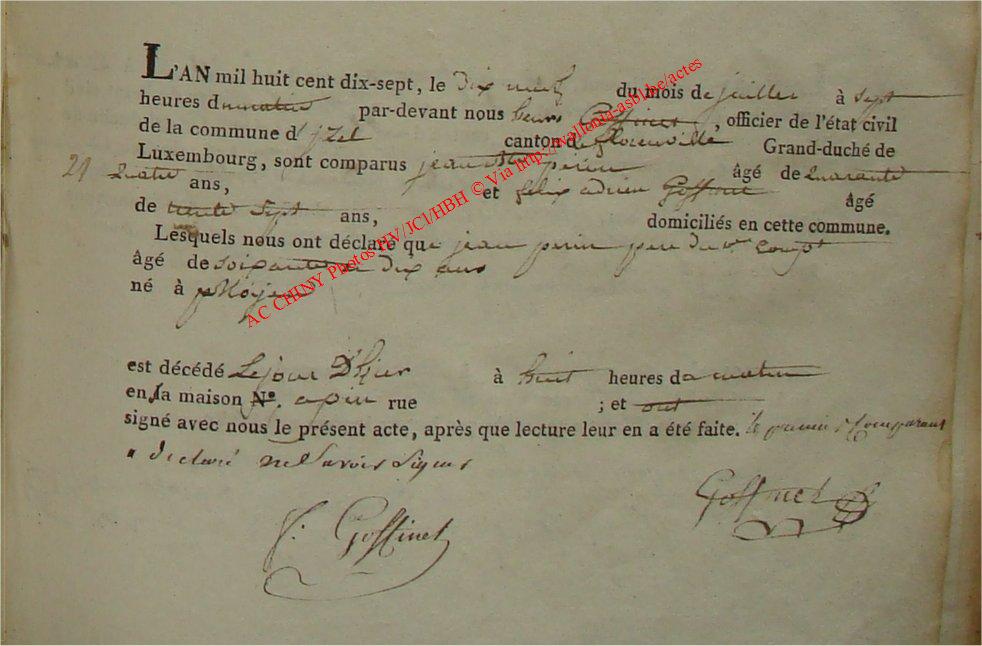 L'AN mil huit cent dix-sept, le dix neuf du mois de juillet à sept
heures du matin par-devant nous henri Goffinet, officier de l'état civil
de la commune d'izel canton de florenville Grand-duché de
Luxembourg, sont comparus jean perin âgé de quarante
21 quatre ans, et felix adrien Goffinet âgé
de trente sept ans, domiciliés en cette commune.
Lesquels nous ont déclaré que jean perin pere du 1er comp.t
âgé de soixante et dix ans
né à
est décédé Le jour D'hier à huit heures du matin
en sa maison N.° a pin rue ; et ont
signé avec nous le présent acte, après que lecture leur en a été faite. le premier Comparant
a declaré ne Savoir Signer
Goffinet
f. Goffinet
AC CHINY Photos HV/JCl/HBH © Via http://wallonia-asbl.be/actes